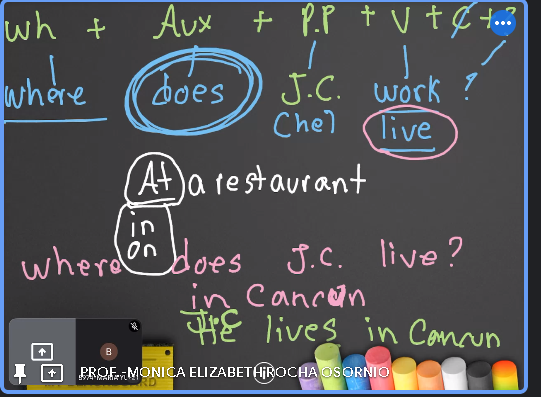 wh + Aux + P.P + V + C + ?
where does J.C. work ?
Chel live
At a restaurant
in
on
where does J.C. live?
in Cancun
He lives in Cancun
B
PROF.-MONICA ELIZABETH ROCHA OSORNIO